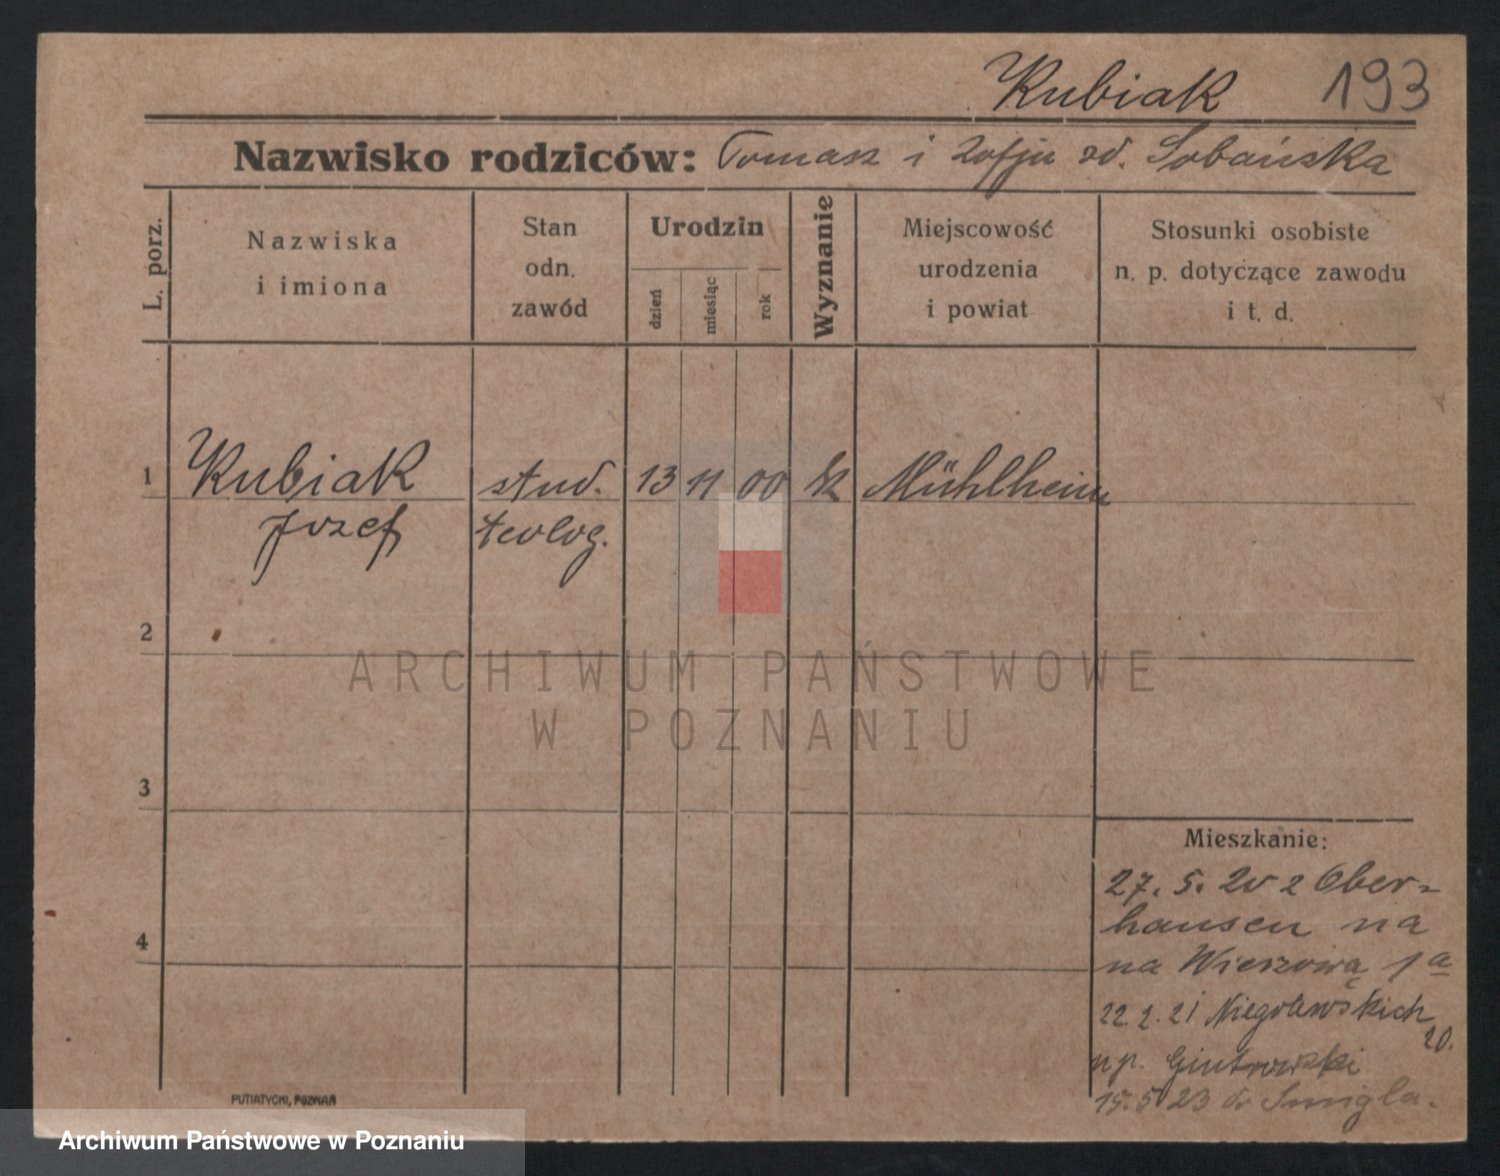 Kubiak 193
Nazwisko rodziców: Tomasz i Zofja od. Sobańska
L. porz.
Nazwiska
i imiona
Stan
odn.
zawód
Urodzin
dzień
miesiąc
rok
Wyznanie
Miejscowość
urodzenia
i powiat
Stosunki osobiste
n. p. dotyczące zawodu
i t. d.
1 Kubiak stud. 13 11 00 Mühlheim
Józef teolog.
2
3
4
Mieszkanie:
27. 5. 20 z Ober-
hausen na
na Wierzową 1a
22. 2. 21 Niegolewskich
20.
n p. Gintrowski
15. 5 23 do Smigla.
PUTIATYCKI, POZNAŃ
ARCHIWUM PAŃSTWOWE
W POZNANIU
Archiwum Państwowe w Poznaniu